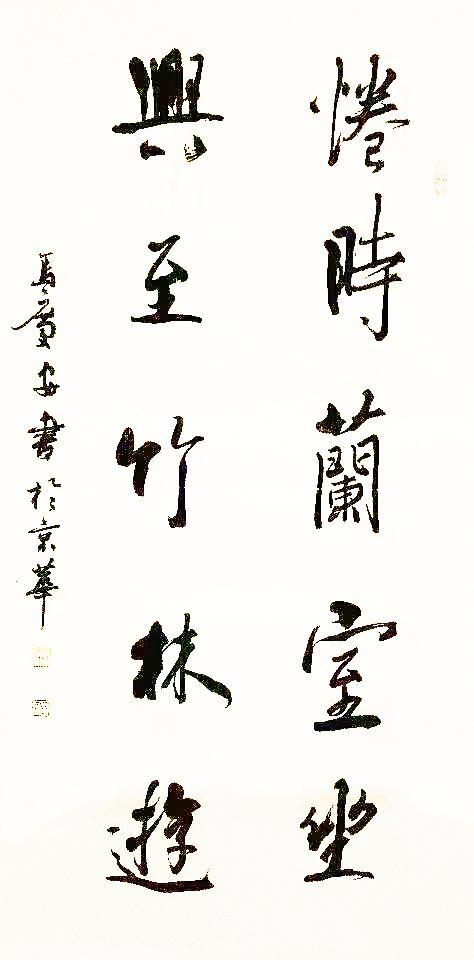 惓時蘭室坐
興至竹林遊
馬慶安書於京華